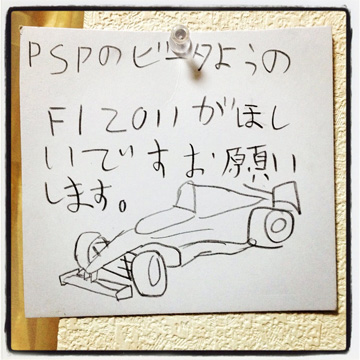 PSPのビータようの
F1 2011がほし
いですお願い
します。